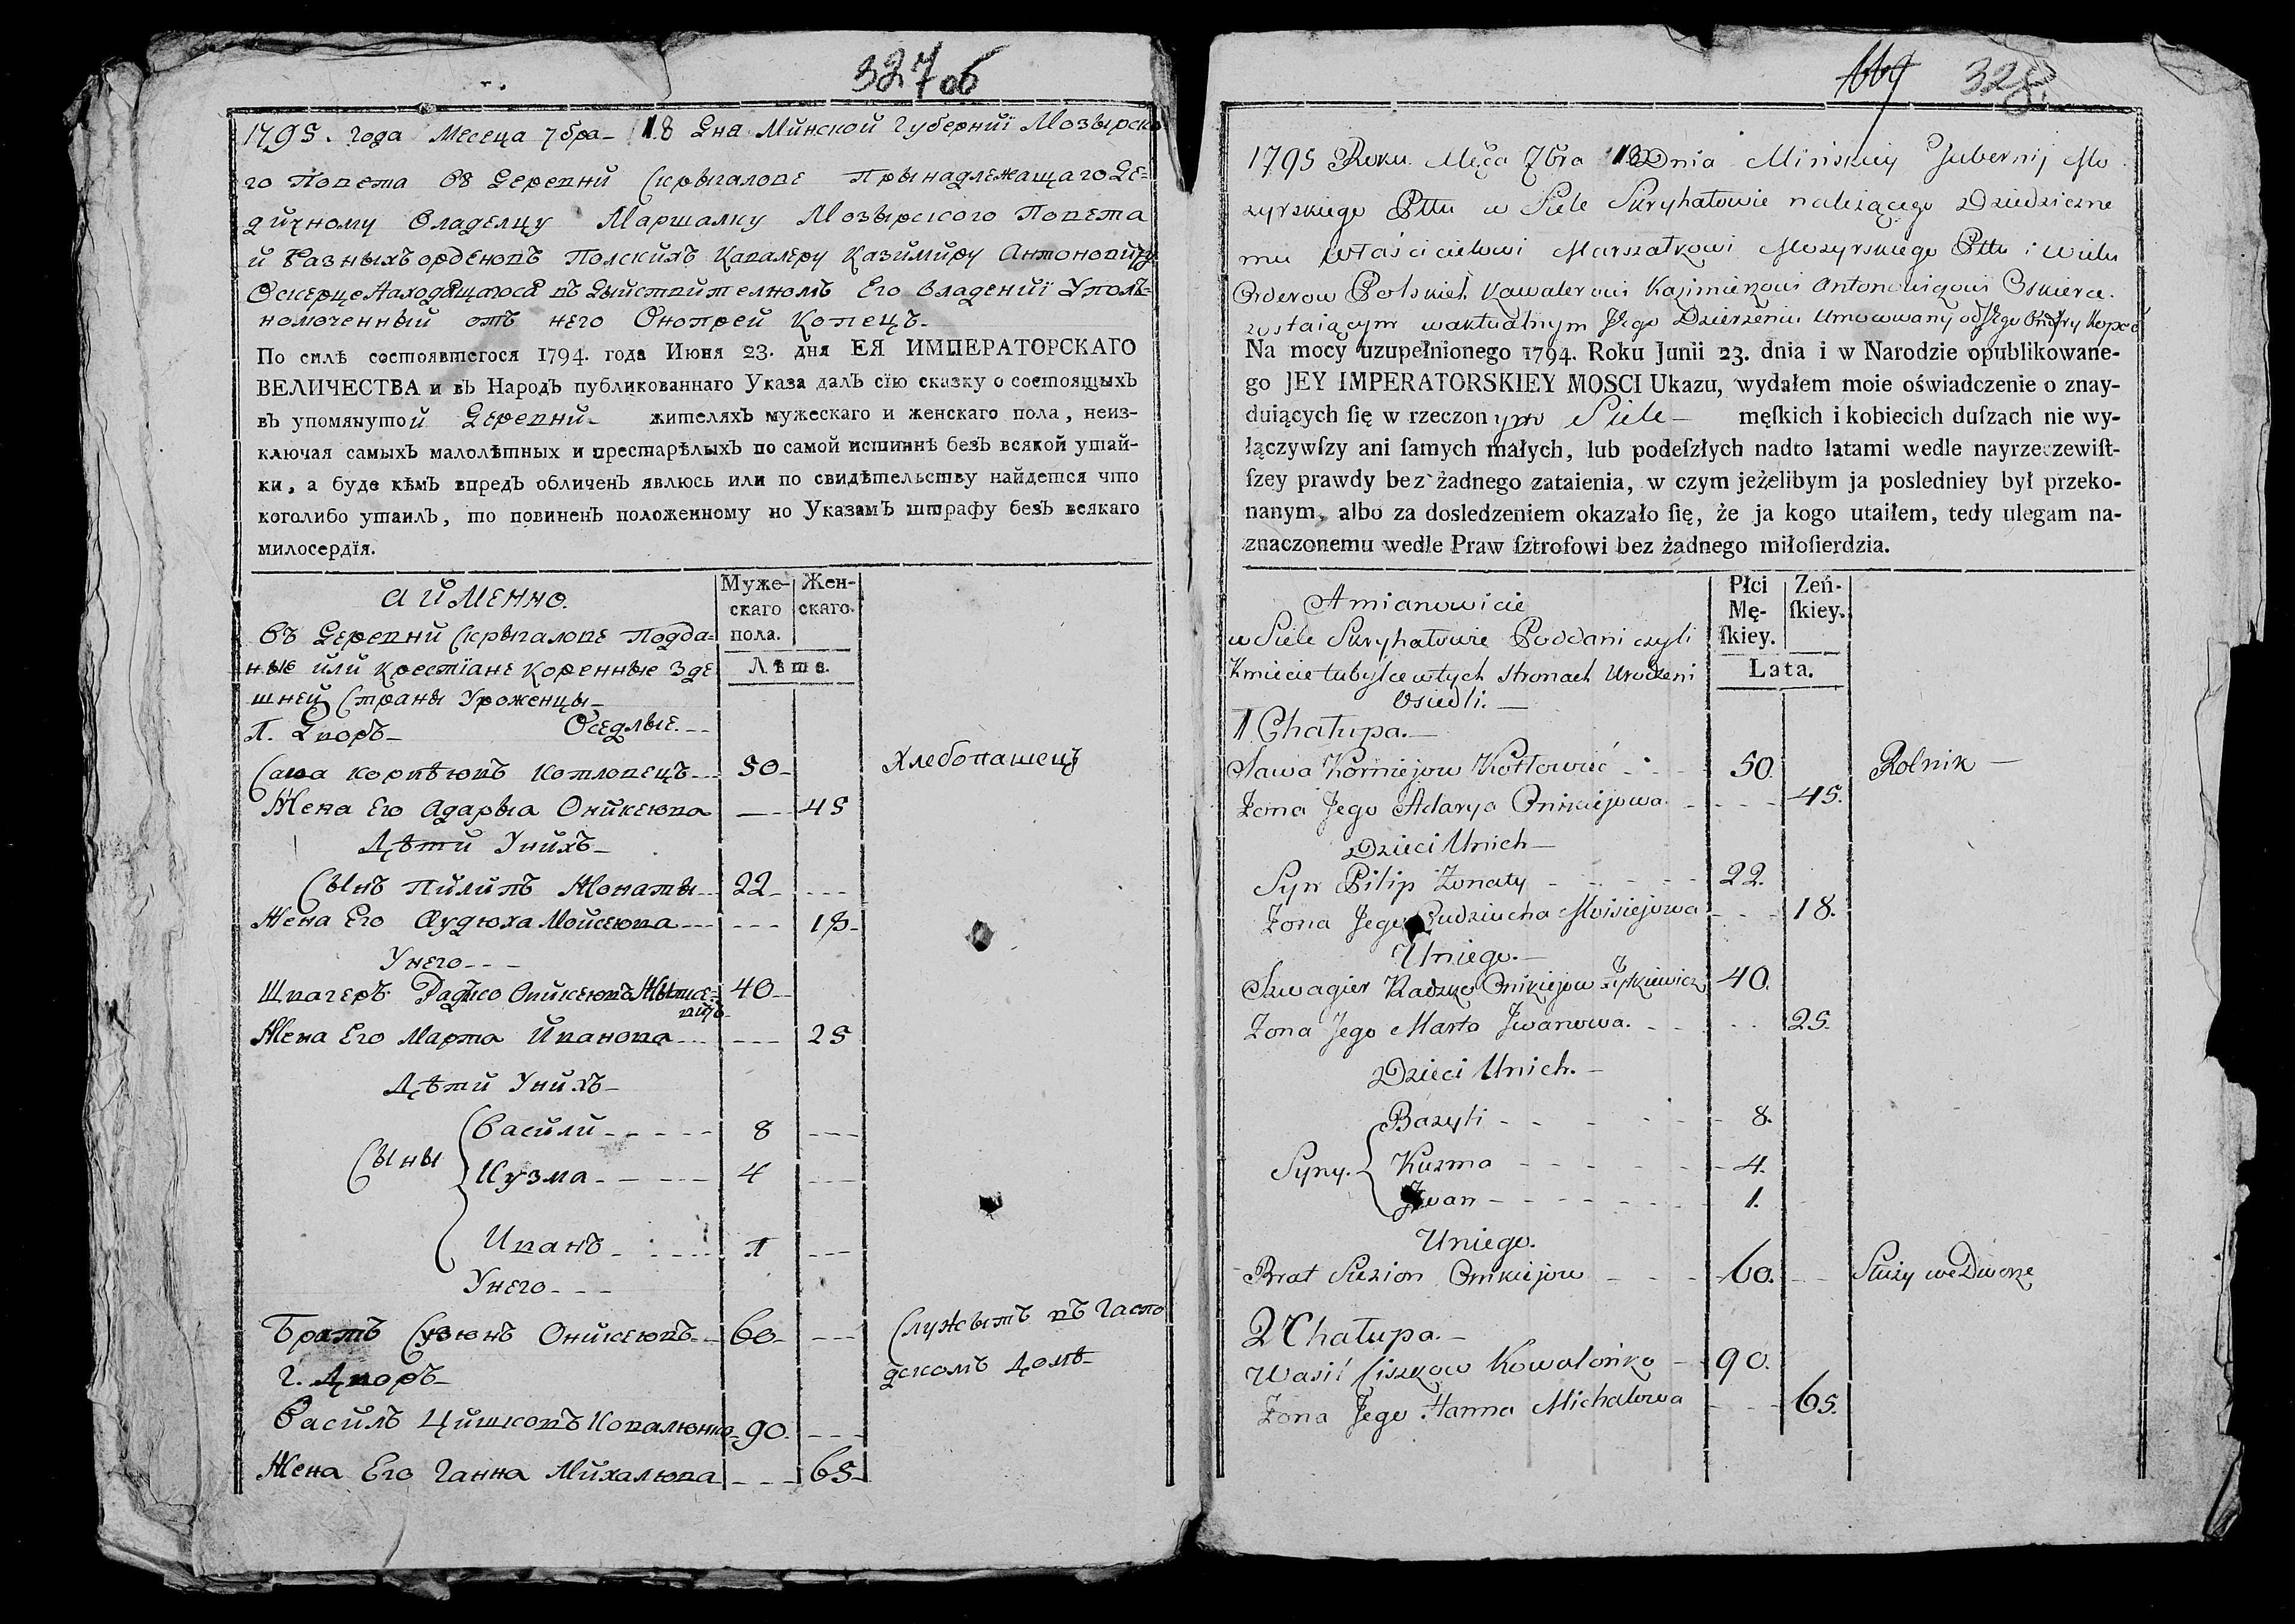 327 об
1795. года Месеца 7бра 18 Дня Минской Губернйї Мозырско
го Повета Въ Деревнй Скрыгалове прынадлежащаго Де-
дйчному Владелцу Маршалку Мозырского Повета
й Разныхъ орденовъ Полскйхъ Кавалеру Казимйру Антоновйчу
Оскерце Находящагося въ Дыйствйтелномъ Его Владенйї Упол-
номоченный отъ него Оноπрей Копецъ
По силѣ состоявшегося 1794. года Июня 23. дня ЕЯ ИМПЕРАТОРСКАГО
ВЕЛИЧЕСТВА и въ Народъ публикованнаго Указа далъ сїю сказку о состоящыхъ
въ упомянутой Деревнй жителяхъ мужескаго и женскаго пола, неиз-
ключая самыхъ малолѣтныхъ и престарѣлыхъ по самой истиннѣ безъ всякой утай-
ки, а буде кѣмъ впредъ обличенъ явлюсь или по свидѣтельству найдется что
коголибо утаилъ, то повиненъ положенному по Указамъ штрафу безъ всякаго
милосердїя.
а йменно.
Муже-скаго пола.
Жен-скаго.
Лѣта.
Въ Деревнй Скрыгалове Подда=
ные или Крестїане Коренные Зде
шней Страны Уроженцы
Оседлые.
1. Дворъ
Сава Корнѣювъ Котловецъ 50
Хлебопашецъ
Жена Его Адарыа Онйкеюва 45
Дѣтй Унйхъ
Сынъ Пйлипъ Жонаты 22
Жена Его Аудюха Мойсеюва 18
Унего
Швагеръ Радько Онйкеювъ 40
Жена Его Марта Йванова 25
Дѣтй Унйхъ
Сыны
Василй 8
Кузма 4
Иванъ 1
Унего
Братъ Сузюнъ Онйкеювъ 60
Служытъ въ Гаспо
дскомъ Домѣ
2. Дворъ
Василь Цйшковъ Ковалюнко 90.
Жена Его Ганна Михалюва 65
328.
1795 Roku Mẽca 7bra 18 Dnia Minskiey Gubernij Mo
zyrskiego Pttu w Siele Skryhałowie należącego Dziedziczne
mu Właścicielowi Marszałkowi Mozyrskiego Pttu i wielu
Orderow Polskich Kawalerowi Kazimierzowi Antonowiczowi Oskierce.
zostaiącym waktualnym Jego Dzierzeniu Umocowany od Jego Onofry Kopeć
Na mocy uzupełnionego 1794. Roku Junii 23. dnia i w Narodzie opublikowane-
go JEY IMPERATORSKIEY MOSCI Ukazu, wydałem moie oświadczenie o znay-
duiących ſię w rzeczonym Siele męſkich i kobiecich duſzach nie wy-
łączywſzy ani ſamych małych, lub podeſzłych nadto latami wedle nayrzeczewiſt-
ſzey prawdy bez żadnego zataienia, w czym jeżelibym ja posledniey był przeko-
nanym, albo za dosledzeniem okazało ſię, że ja kogo utaiłem, tedy ulegam na-
znaczonemu wedle Praw ſztrofowi bez żadnego miłoſierdzia.
Amianowicie
Płci Mę-ſkiey.
Zeń-ſkiey.
Lata.
w Siele Skryhałowie Poddani czyli
Kmiecie tubylce wtych Stronach Urodzeni
Osiedli.
1 Chałupa.
Sawa Korniejow Kotłowieć 50.
Rolnik
Zona Jego Adarya Onikiejowa 45.
Dzieci Unich
Syn Pilip Zonaty 22.
Zona Jego Audziucha Moisiejowa 18.
Uniego.
Szwagier Radzko Onikiejow Zyłkiewicz 40.
Zona Jego Marta Jwanowa. 25.
Dzieci Unich.
Syny.
Bazyli 8.
Kuzma 4.
Jwan 1.
Uniego.
Brat Suzion Onikiejow 60.
Służy we Dworze
2 Chałupa.
Wasil Ciszkow Kowalońko 90.
Zona Jego Hanna Michałowa 65.